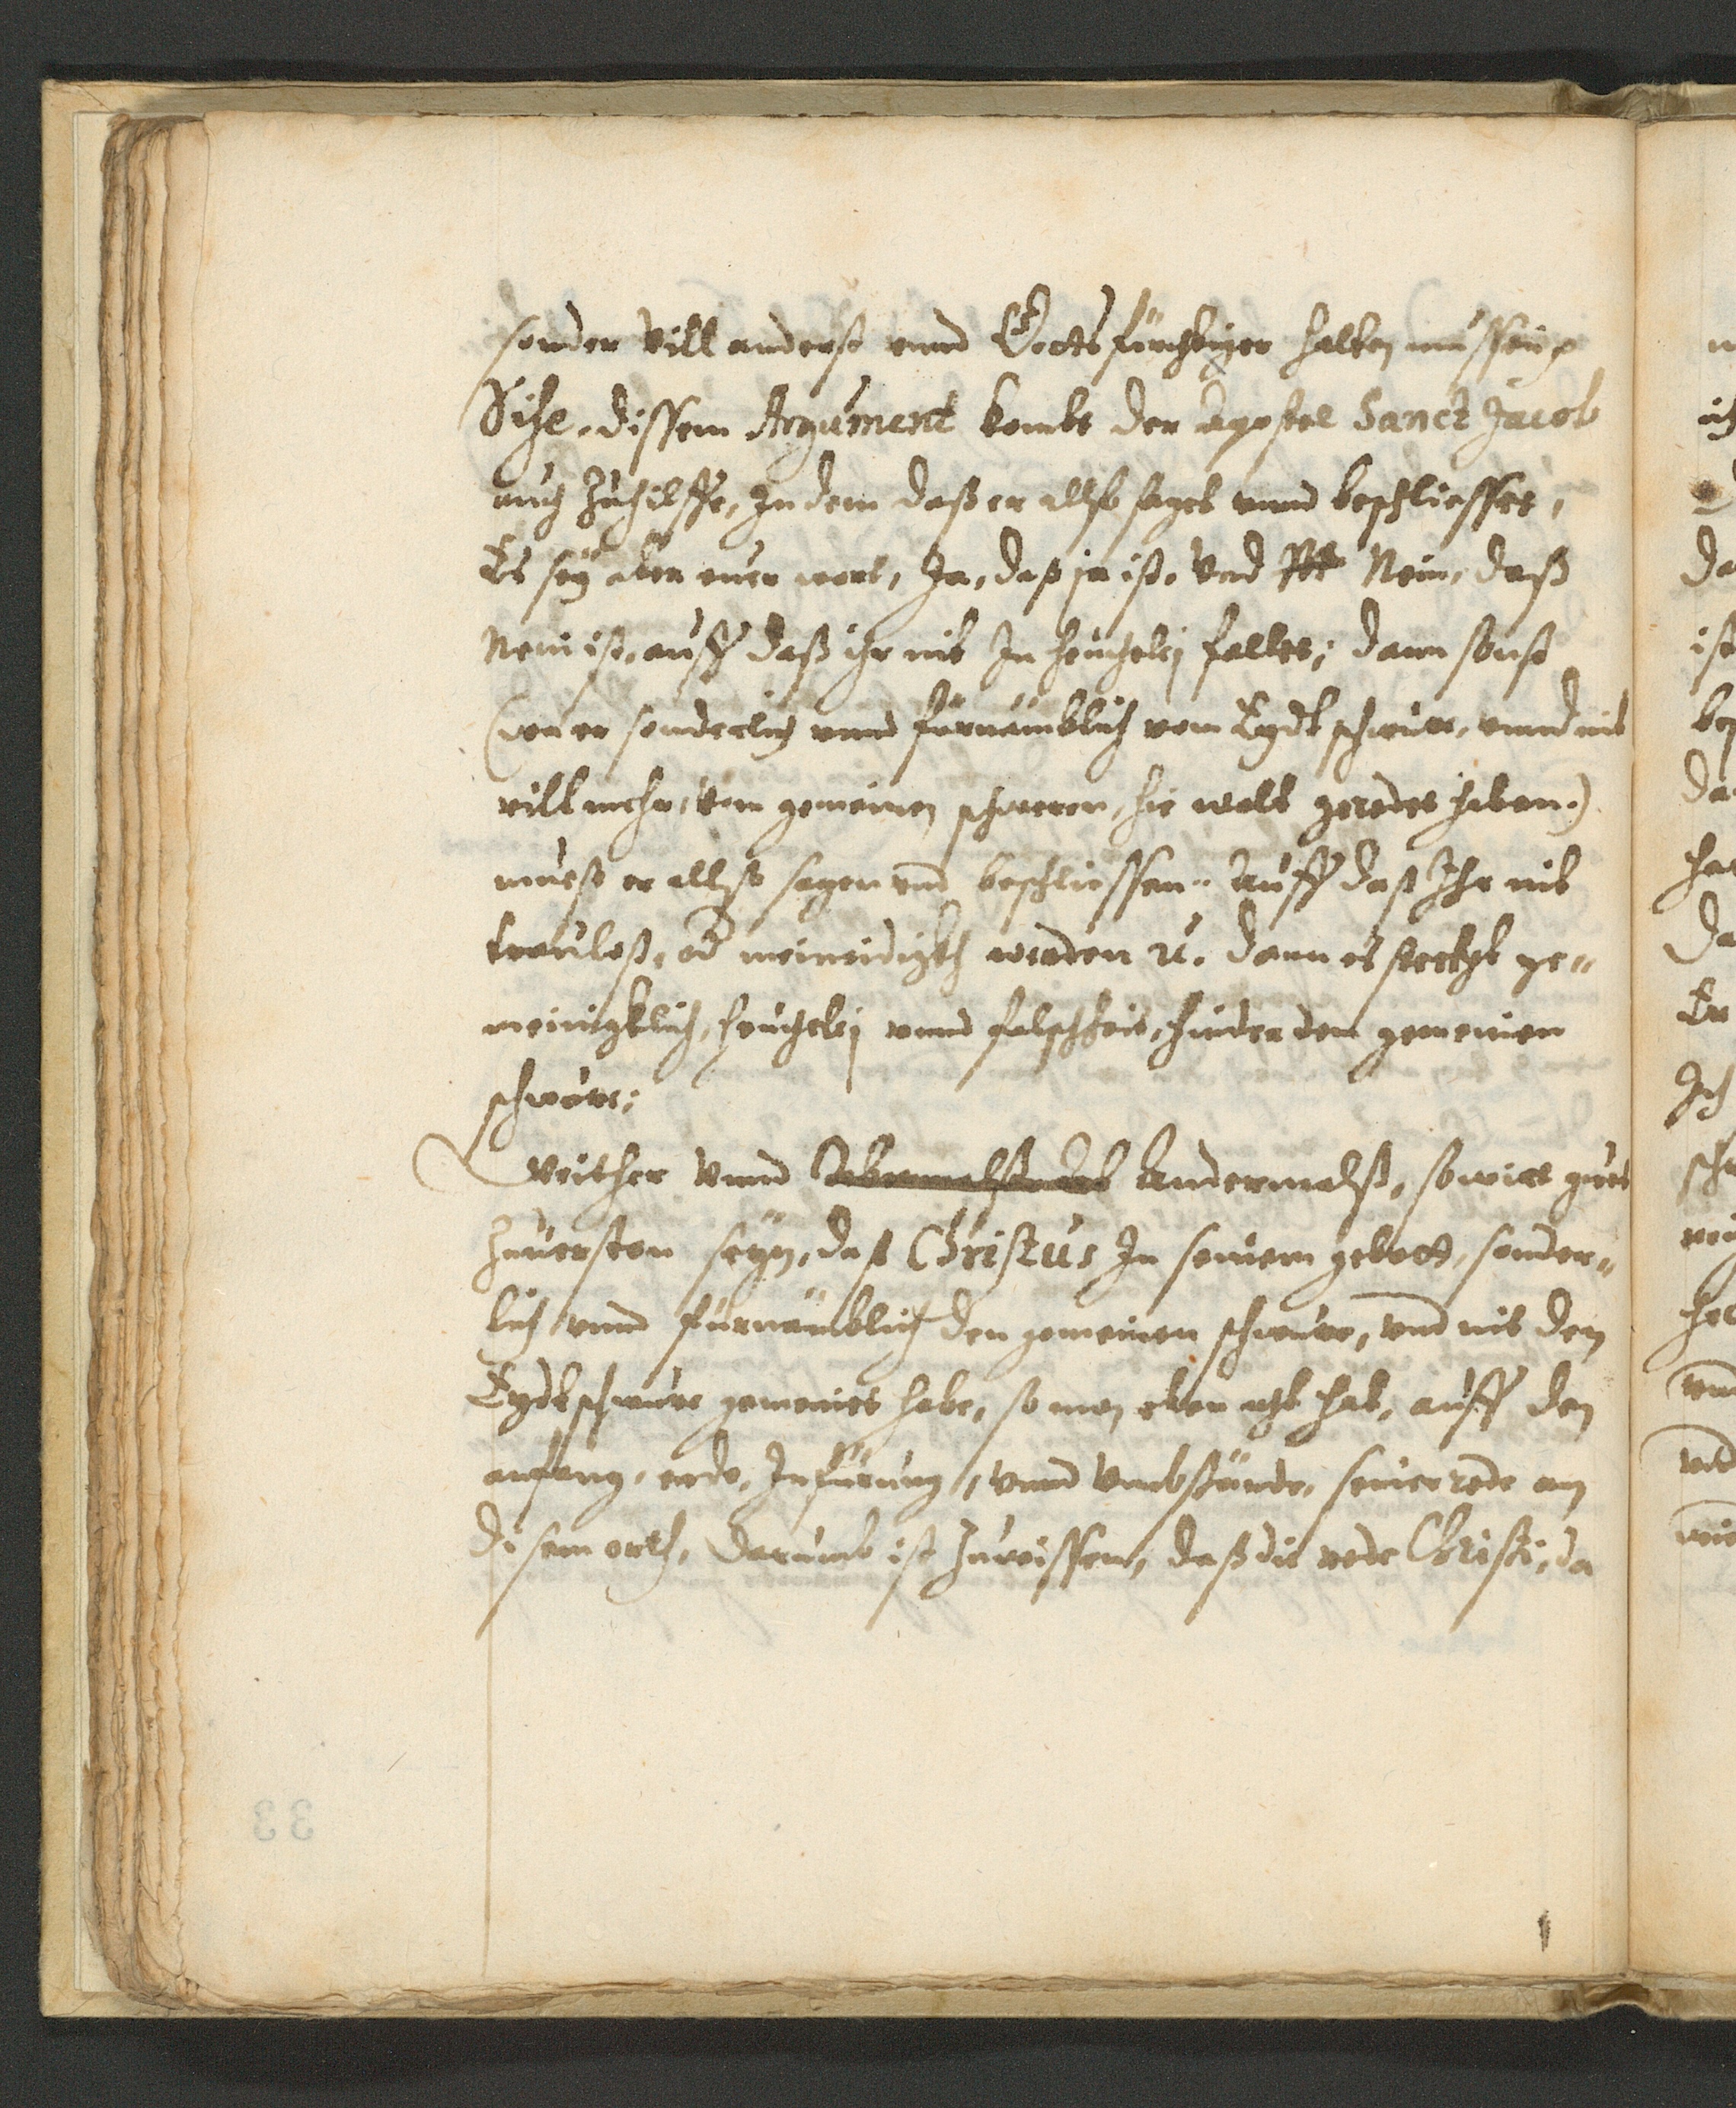 sonder vill anderst vnnd Gottsfürchtiger halten müssen
Sihe, dissem Argument kombt der Apostel Sanct Jacob
auch zuhilffe, In dem daß er allso saget vnnd beschliesset,
Es seÿ aber euer wort, Ja, daß ja ist, vnd Nein, daß
Nein ist, auff daß ihr nit In heuchelej fallet; dann sonst
(wa er sonderlich vnnd fürnämblich vom Eydtschwur, vnnd nit
vill mehr, vom gemeinen schweren, hie wolt geredet haben.)
muest er allso sagen vnd beschliessen. Auff daß Ihr nit
trewloß, od meineidigkh werden u. dann es steckht ge-
meinigklich, heuchelej vnnd falschheit, hinder dem gemeinen
schwöre;
Weither vnnd Andermalß, so wirt guet
Zuuersten seÿn, daß Christus In seinem gebott, sonder-
lich vnnd fürnämblich den gemeinen schwur, vnd nit den
Eydtschwur gemeinet habe, so man eben acht hat, auff den
anfang, ende, Infürung, vnnd vmbstände, seiner rede an
disem orth, Darumb ist zuwissen, daß die rede Christi, da
33